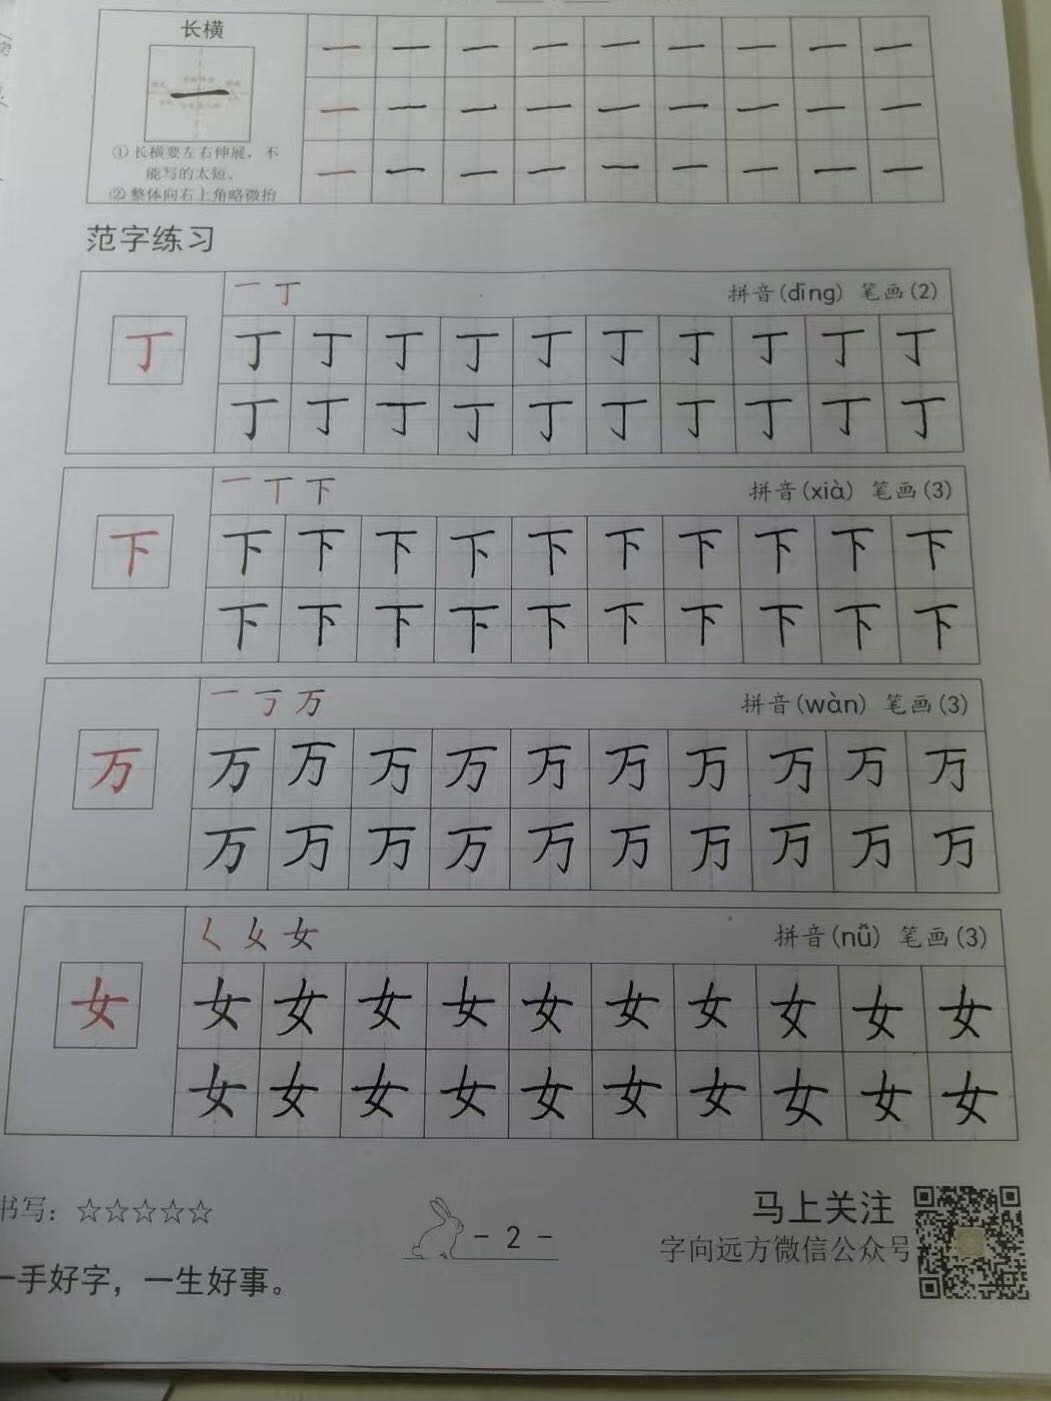 长横
一 一 一 一 一 一 一 一 一
一 一 一 一 一 一 一 一 一
①长横要左右伸展，不
能写的太短。
一 一 一 一 一 一 一 一 一
②整体向右上角略微抬
范字练习
一 丁 拼音(dīng) 笔画(2)
丁 丁 丁 丁 丁 丁 丁 丁 丁 丁 丁
丁 丁 丁 丁 丁 丁 丁 丁 丁 丁
一 丅 下 拼音(xià) 笔画(3)
下 下 下 下 下 下 下 下 下 下 下
下 下 下 下 下 下 下 下 下 下
一 丂 万 拼音(wàn) 笔画(3)
万 万 万 万 万 万 万 万 万 万 万
万 万 万 万 万 万 万 万 万 万
女 拼音(nǚ) 笔画(3)
女 女 女 女 女 女 女 女 女 女 女
女 女 女 女 女 女 女 女 女 女
书写：☆☆☆☆☆
- 2 -
马上关注
字向远方微信公众号
一手好字，一生好事。